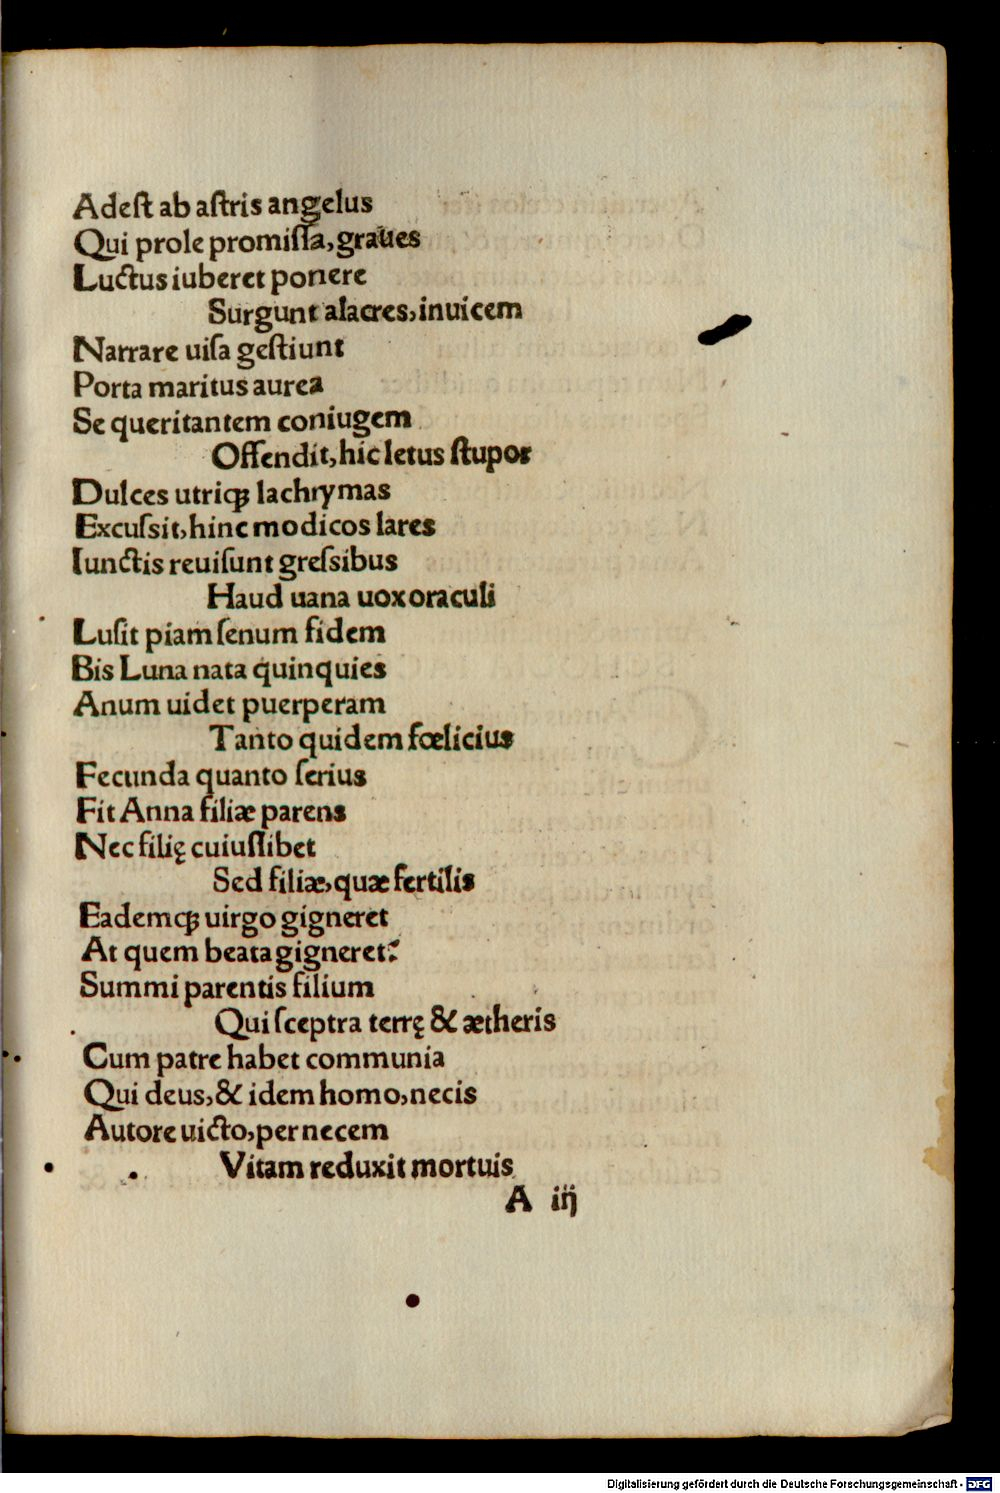 Adeſt ab aſtris angelus
Qui prole promiſſa, graues
Luctus iuberet ponere
Surgunt alacres, inuicem
Narrare uiſa geſtiunt
Porta maritus aurea
Se queritantem coniugem
Offendit, hic letus ſtupor
Dulces utriqꝫ lachrymas
Excuſsit, hinc modicos lares
Iunctis reuiſunt greſsibus
Haud uana uox oraculi
Luſit piam ſenum fidem
Bis Luna nata quinquies
Anum uidet puerperam
Tanto quidem fœlicius
Fecunda quanto ſerius
Fit Anna filiæ parens
Nec filię cuiuſlibet
Sed filiæ, quæ fertilis
Eademqꝫ uirgo gigneret
At quem beata gigneret?
Summi parentis filium
Qui ſceptra terrę & ætheris
Cum patre habet communia
Qui deus, & idem homo, necis
Autore uicto, per necem
Vitam reduxit mortuis
A iij
Digitalisierung gefördert durch die Deutsche Forschungsgemeinschaft - DFG